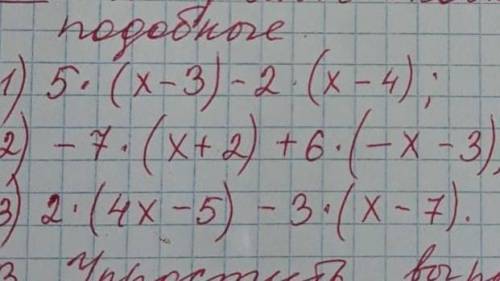 подобные
1) 5·(x-3)-2·(x-4);
2) -7·(x+2)+6·(-x-3),
3) 2·(4x-5)-3·(x-7).
Упростить